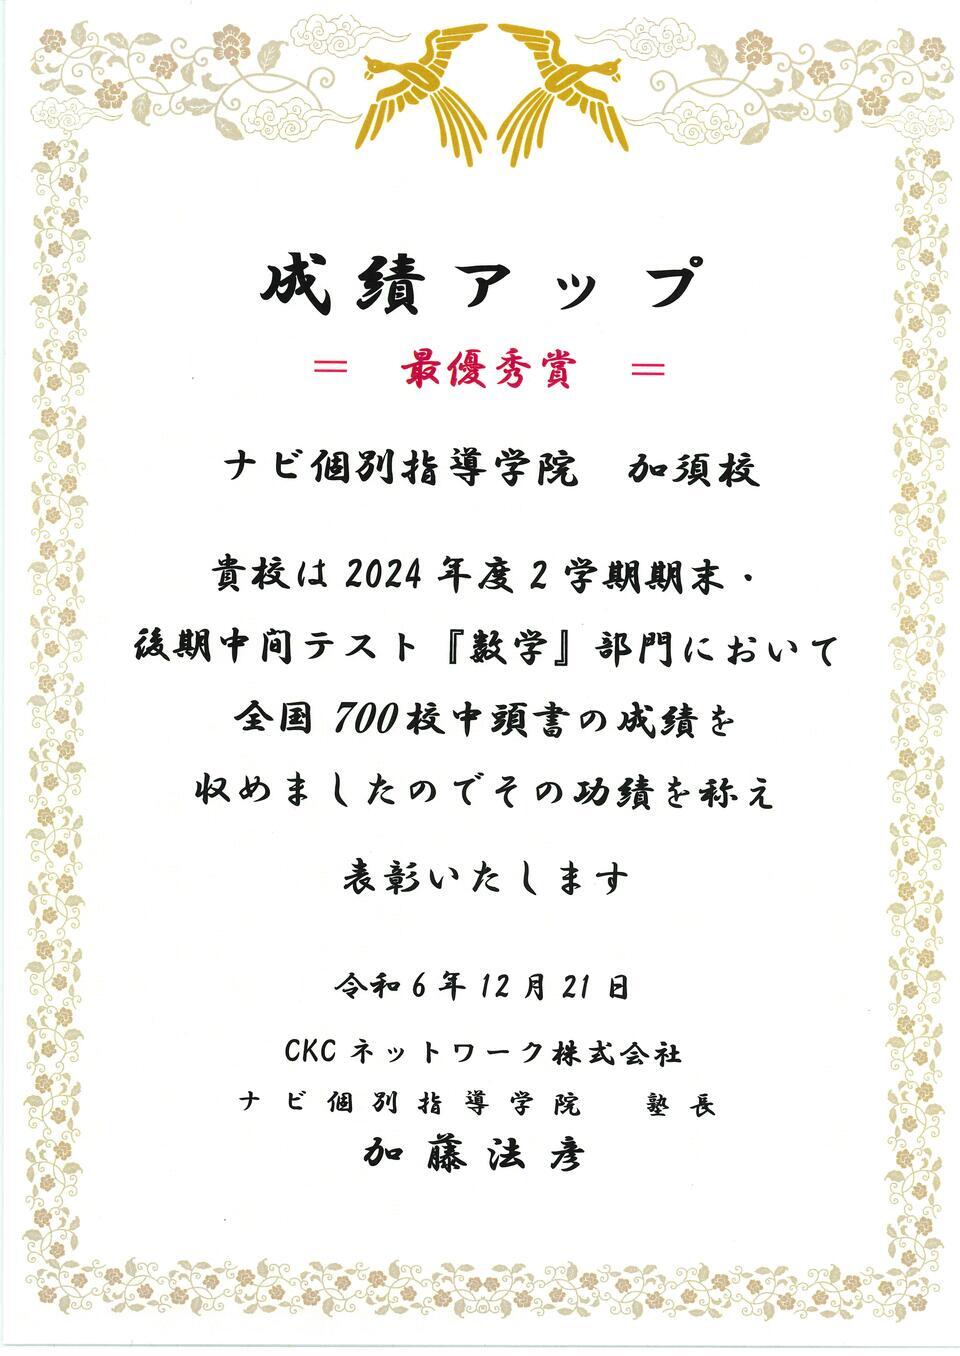 成績アップ
＝　最優秀賞　＝
ナビ個別指導学院　加須校
貴校は2024年度2学期期末・
後期中間テスト『数学』部門において
全国700校中頭書の成績を
収めましたのでその功績を称え
表彰いたします
令和6年12月21日
CKCネットワーク株式会社
ナビ個別指導学院　塾長
加藤法彦